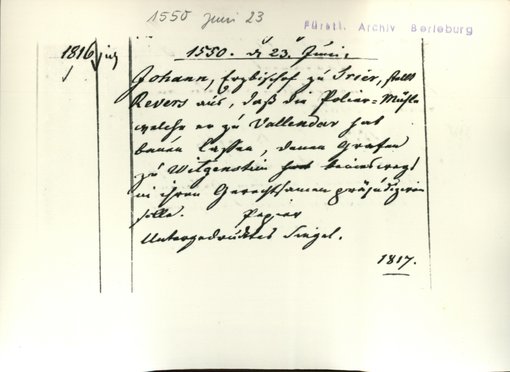 1550 Juni 23
Fürstl. Archiv Berleburg
1816
1550. d 23. Juni.
Johann, Erzbischof zu Trier, stellt
Revers aus, daß die Polier=Mühle
welche er zu Vallendar hat
bauen lassen, denen Grafen
zu Witgenstein keineswegs
in ihren Gerechtsamen präjudiziren
solle. Papier
Untergedrucktes Siegel.
1817.